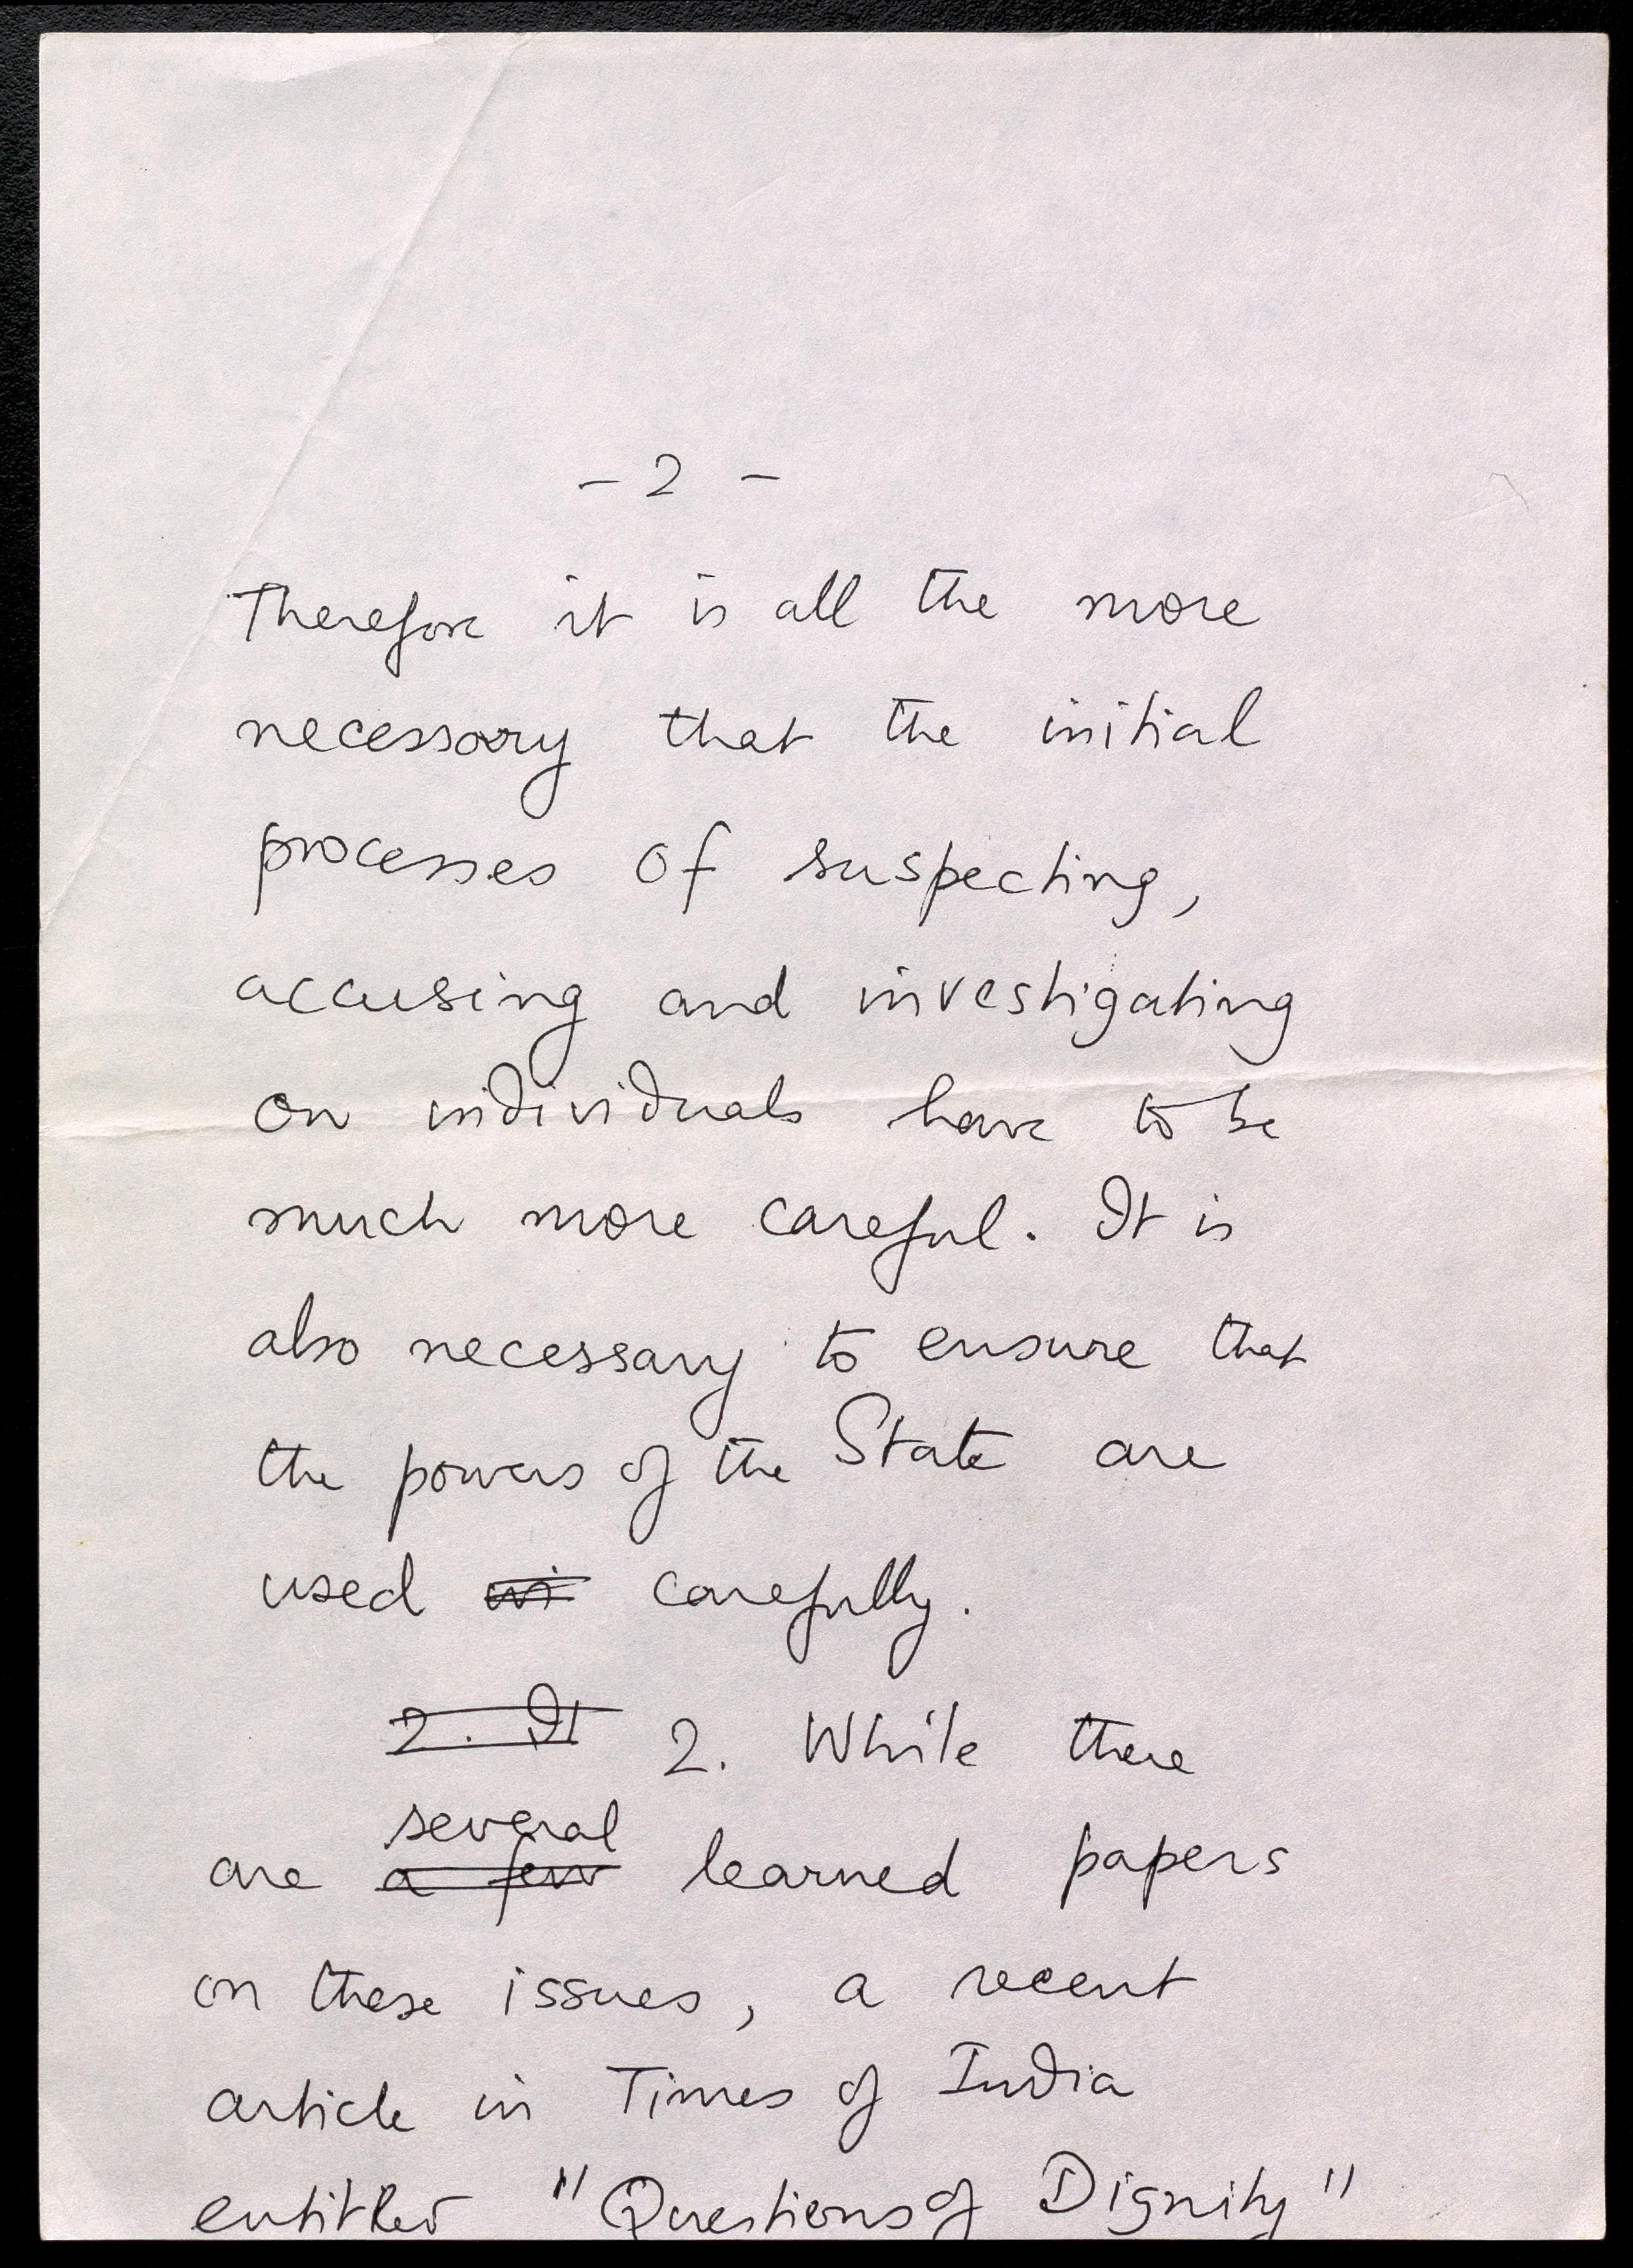 - 2 -
Therefore it is all the more
necessary that the initial
processes of suspecting,
accusing and investigating
on individuals have to be
much more careful. It is
also necessary to ensure that
the powers of the State are
used wi carefully.
2. It 2. While there
several
are a few learned papers
on these issues, a recent
article in Times of India
entitled "Questions of Dignity"